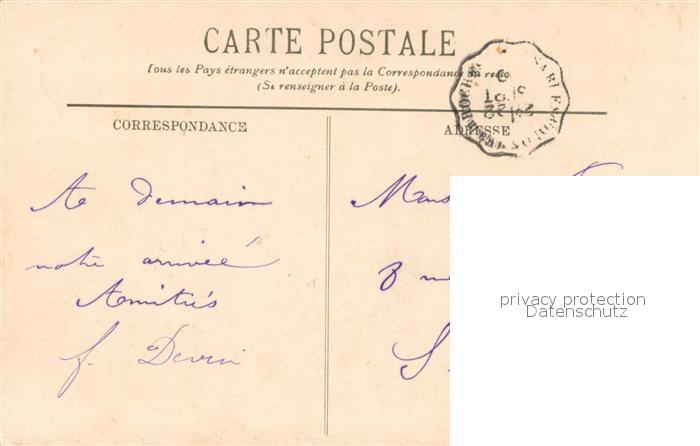 CARTE POSTALE
Tous les Pays étrangers n'acceptent pas la Correspondance au recto
(Se renseigner à la Poste).
CORRESPONDANCE
ADRESSE
A demain
notre arrivée
Amitiés
f. Devin
Mons
8
S
privacy protection
Datenschutz